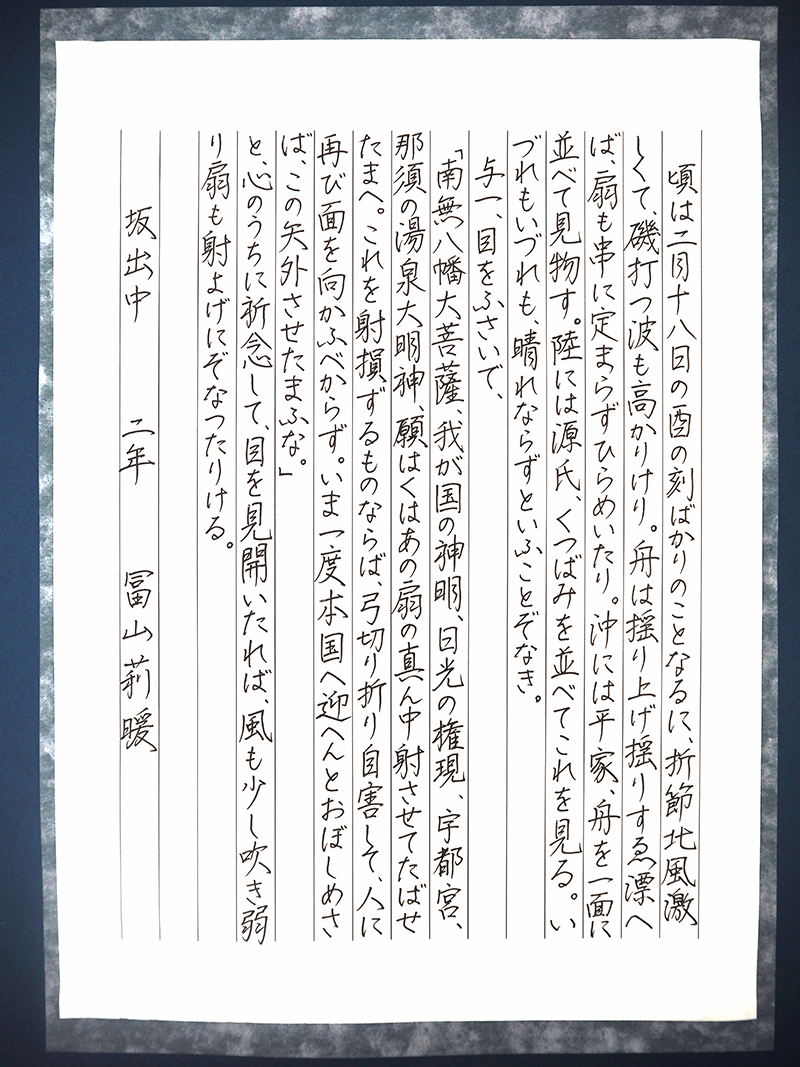 頃は二月十八日の酉の刻ばかりのことなるに、折節北風激
しくて、磯打つ波も高かりけり。舟は揺り上げ揺りすゑ漂へ
ば、扇も串に定まらずひらめいたり。沖には平家、舟を一面に
並べて見物す。陸には源氏、くつばみを並べてこれを見る。い
づれもいづれも、晴れならずといふことぞなき。
与一、目をふさいで、
「南無八幡大菩薩、我が国の神明、日光の権現、宇都宮、
那須の湯泉大明神、願はくはあの扇の真ん中射させてたばせ
たまへ。これを射損ずるものならば、弓切り折り自害して、人に
再び面を向かふべからず。いま一度本国へ迎へんとおぼしめさ
ば、この矢外させたまふな。」
と、心のうちに祈念して、目を見開いたれば、風も少し吹き弱
り扇も射よげにぞなつたりける。
坂出中 二年 冨山莉暖